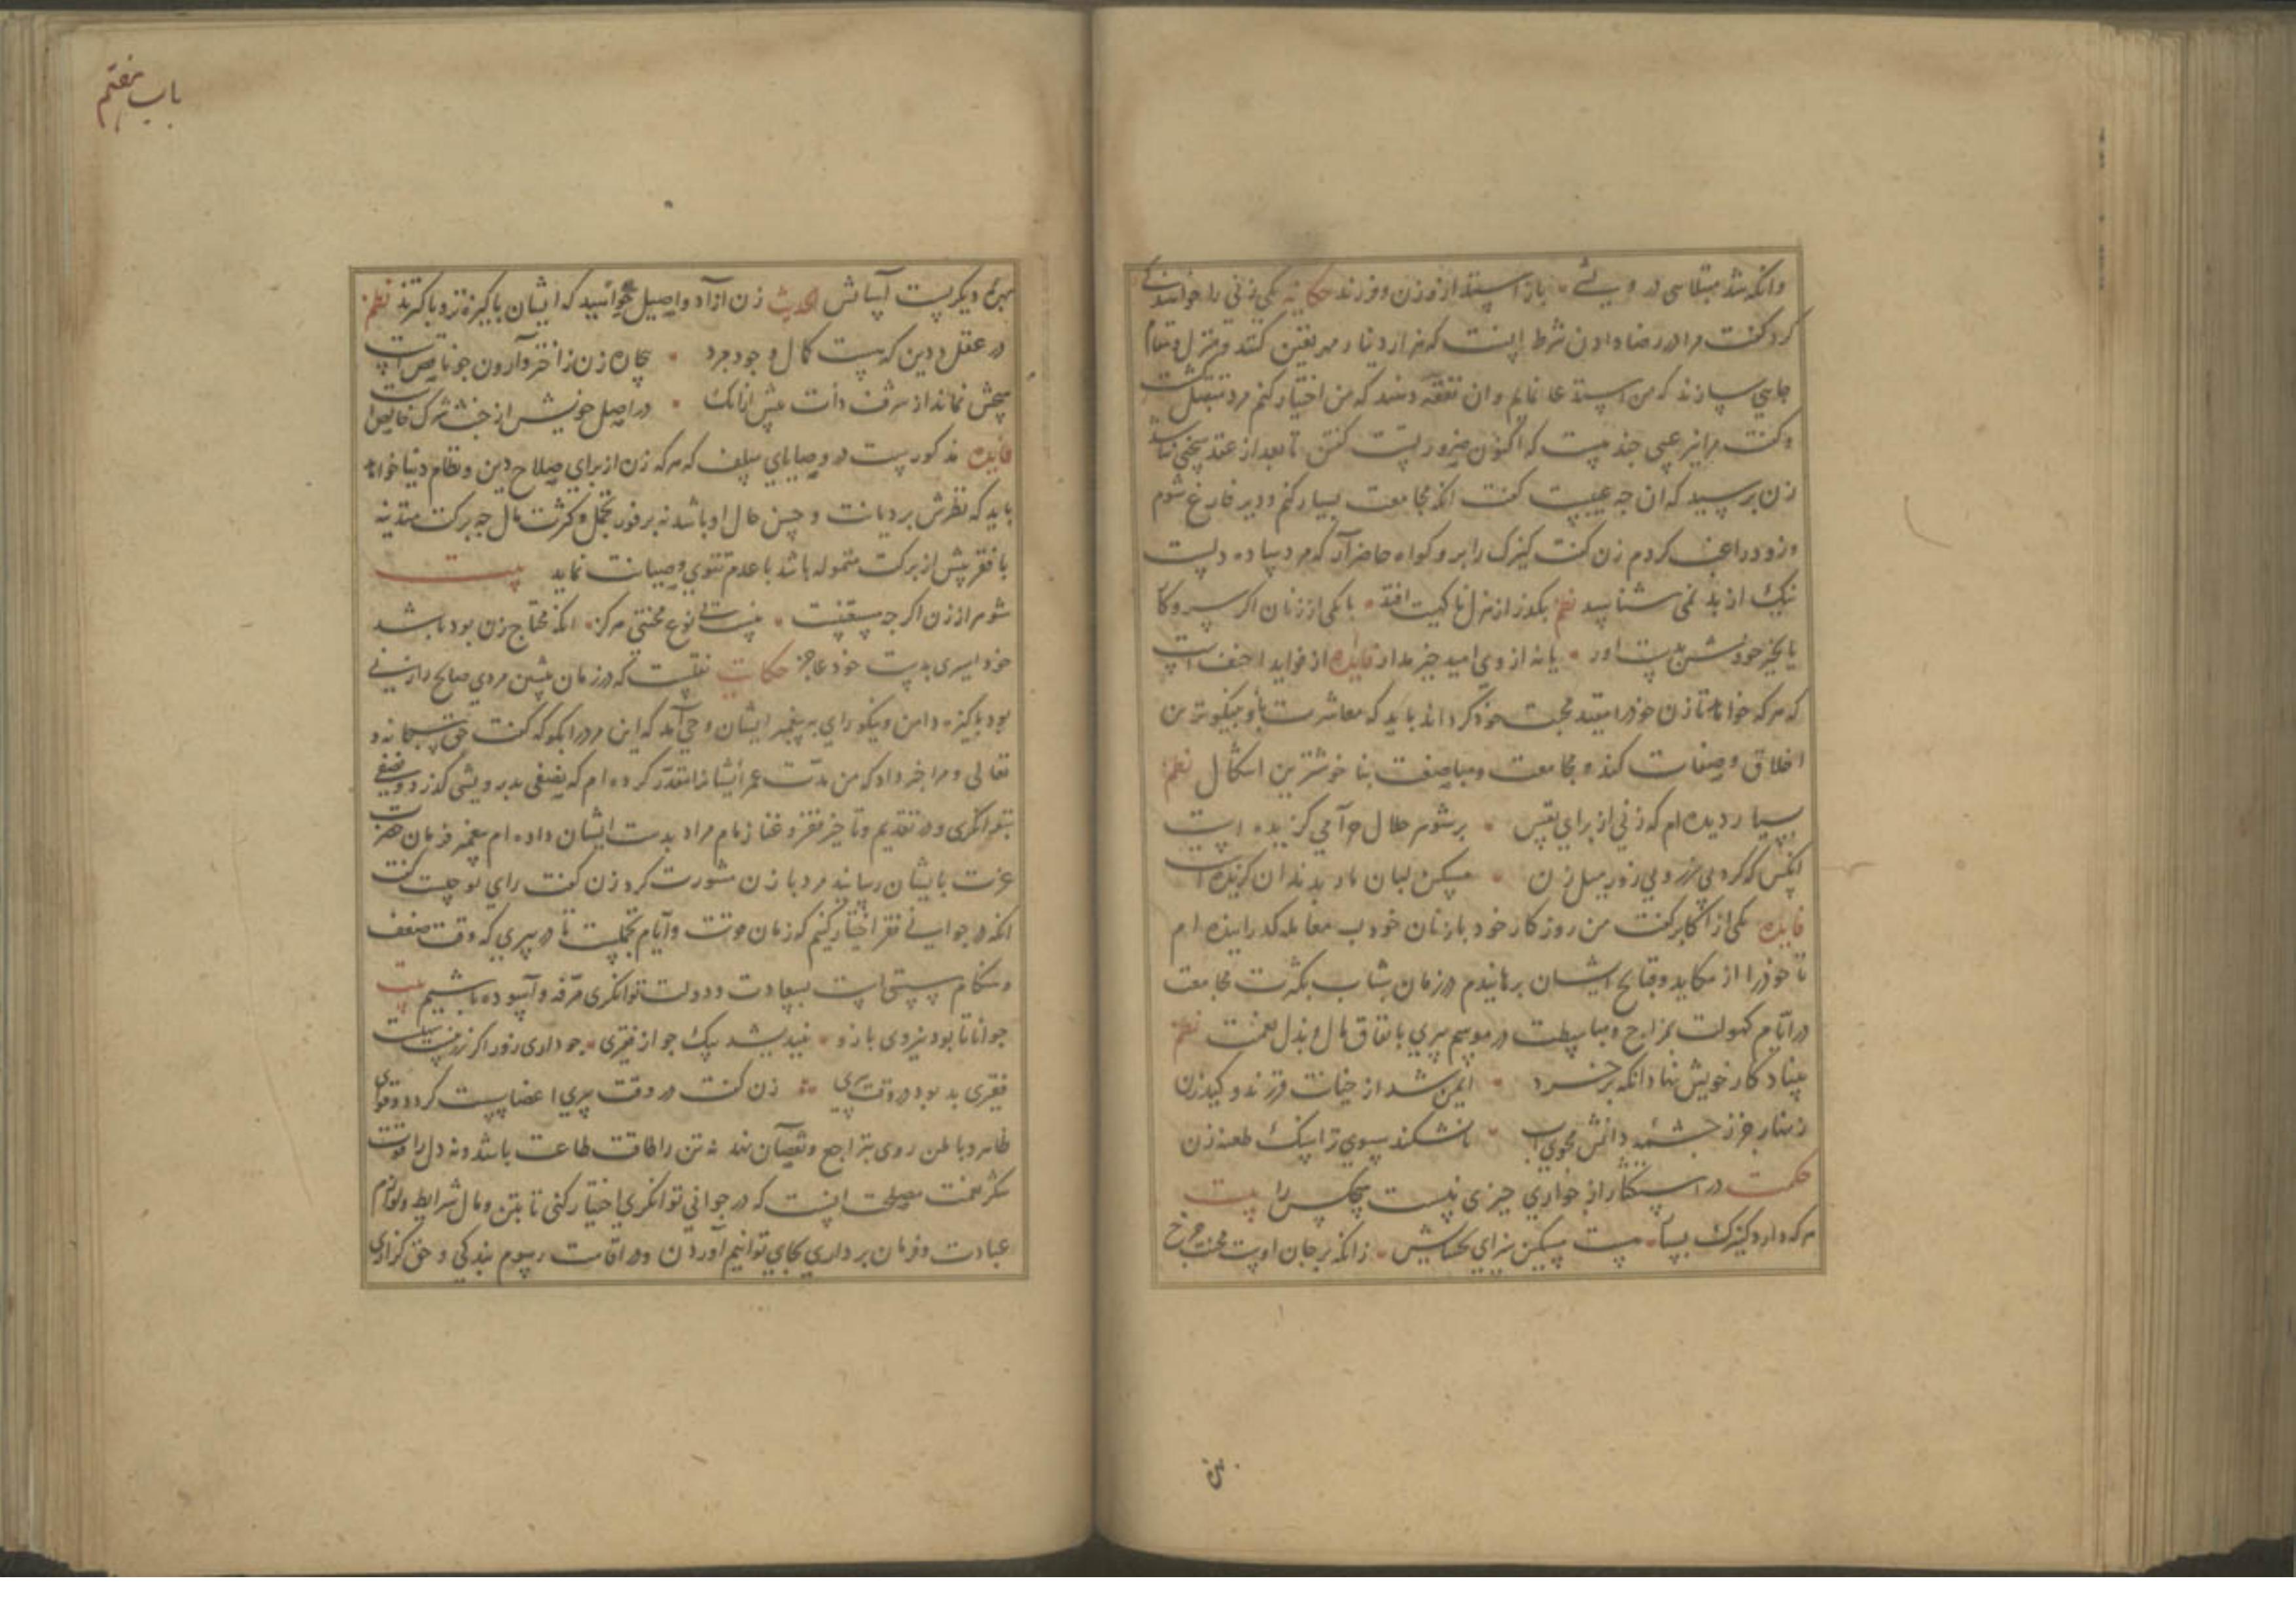 وانکه شد مبتلا سی درویشی بازاستد از زن و فرزند حکایة یکی زنی را خواستند کی
کرد گفت مرا در رضا دادن شرط اینست که هزار دینار مهر تعیین کنند و منزل و مقام
جایی سازند که من استدعا نمایم وان نفقه دهند که من اختیار کنم مرد متقبل کشت
و گفت مرا نیز عیبی چند هست که اکنون ضرور یست گفتن تا بعد از عقد سخنی نباشد
زن پرسید که ان چه عیبست گفت انکه مجامعت بسیار کنم و دیر فارغ شوم
و زود راغب کردم زن گفت کنیزک را برو و کواه حاضر آر که مرد ساده دلست
نیک از بد نمی شناسد نظم بکذر از منزل ناکیت افتد با یکی از زنان اگر سر و کار
یا بخیر خودش بدست اور یا نه از وی امید خیر مدار فایده از فواید احنف است
که هرکه خواهد تا زن خود را مقید محبت خود کرداند باید که معاشرت باو بنیکوترین
اخلاق و صفات کند و مجامعت و مباضعت بنا خوشترین اشکال نظم
بسیار دیده ام که زنی از برای نفس بر شوهر حلال حرامی کزیده است
انکس که کرد بی زر و بی زور میل زن مسکین لبان مار بدندان کزیده است
فایده یکی از اکابر گفت من روزکار خود با زنان خود ب معامله کذرانیده ام
تا خود را از مکاید و قبایح ایشان برهانیدم در زمان شباب بکثرت مجامعت
در ایام کهولت بمزاح و مباسطت در موسم پیری بانفاق مال و بذل نعمت نظم
بنیاد کار خویش نهاد انکه بر خرد ایمن شد از خیانت فرزند و کید زن
زنهار جز ز چشمه دانش مجوی اب تا نشکند سبوی ترا سنک طعنه زن
حکمت در استکثار از جواری چیزی نیست هیچکس را بیت
هرکه دارد کنیزک بسیار هست مسکین سزای بخشایش زانکه بر جان اوست محنت و خرج
بهره
باب هفتم
بهره دیکریست آسایش الحدیث زن ازاد و اصیل بخواهید که ایشان پاکیزه تر و پاکترند نظم
در عقل و دین که هست کمال وجود مرد بیچاره زن ز اختر وارون چو ناقص است
هیچش نماند از شرف ذات پیش ازانک در اصل خویش از خبث شرک خالص است
فایده مذکورست در وصایای سلف که هرکه زن از برای صلاح دین و نظام دنیا خواهد
باید که نظرش بر دیانت و حسن حال او باشد نه بر وفور تجمل و کثرت مال چه برکت متدینه
با فقر بیش از برکت متموله باشد با عدم تقوی و صیانت نماید بیت
شوهر از زن اگر چه مستغنیست نیست بی نوع محنتی هرکز انکه محتاج زن بود باشد
خود اسیری بدست خود عاجز حکایت نقلست که در زمان پیشین مردی صالح را زنی
بود پاکیزه دامن و نیکو رای بر پیغمبر ایشان وحی آمد که این مرد را بکو که گفت حق سبحانه و
تعالی و مرا خبر داد که من مدت عمر ایشانرا مقدر کرده ام که نصفی بدرویشی کذرد و نصفی
بتوانکری و در تقدیم و تاخیر فقر و غنا زمام مراد بدست ایشان داده ام پیغمبر فرمان حضرت
عزت بایشان رسانید مرد با زن مشورت کرد زن گفت رای تو چیست گفت
انکه در جوانی فقر اختیار کنیم که زمان قوت و ایام تحملست تا در پیری که وقت ضعف
و هنکام سستی است بسعادت و دولت توانکری مرفه و آسوده باشیم بیت
جوانا تا بود نیروی بازو نیندیشد یک جو از فقیری چو داری زور اگر زر نیست سهلست
فقیری بد بود در وقت پیری زن گفت در وقت پیری اعضا سست کردد و قوای
ظاهر و باطن روی بتراجع و نقصان نهد نه تن را طاقت طاعت باشد و نه دل را قوت
شکر نعمت مصلحت اینست که در جوانی توانکری اختیار کنی تا بتن و مال شرایط و لوازم
عبادت و فرمان برداری بجای توانیم آوردن و در اقامت رسوم بندکی و حق کزاری